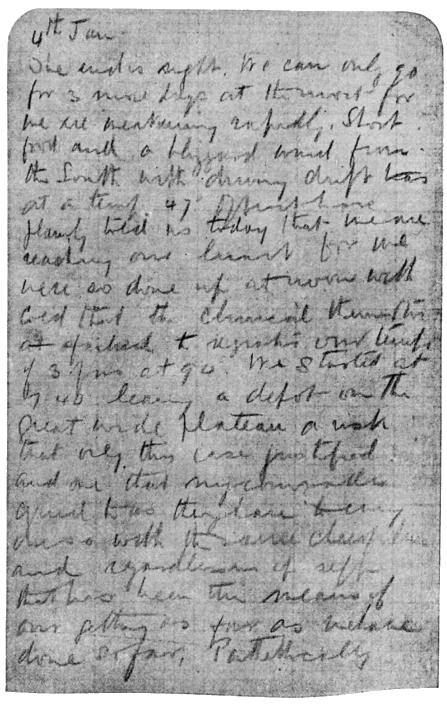 4th Jan.
The end is in sight. We can only go
for 3 more days at the most for
we are weakening rapidly. Short
food and a blizzard wind from
the South with driving drift
at a temp 47° of frost have
plainly told us today that we are
reaching our limit for we
were so done up at noon with
cold that the clinical thermometer
failed to register our temps
of 3 men at 94. We started at
7.40 leaving a depot on the
great wide plateau a risk
that only this case justified
and one that my comrades
agreed to as they have every
one so with the same cheerfulness
and regardlessness of self
that has been the means of
our getting as far as we have
done so far. Pathetically